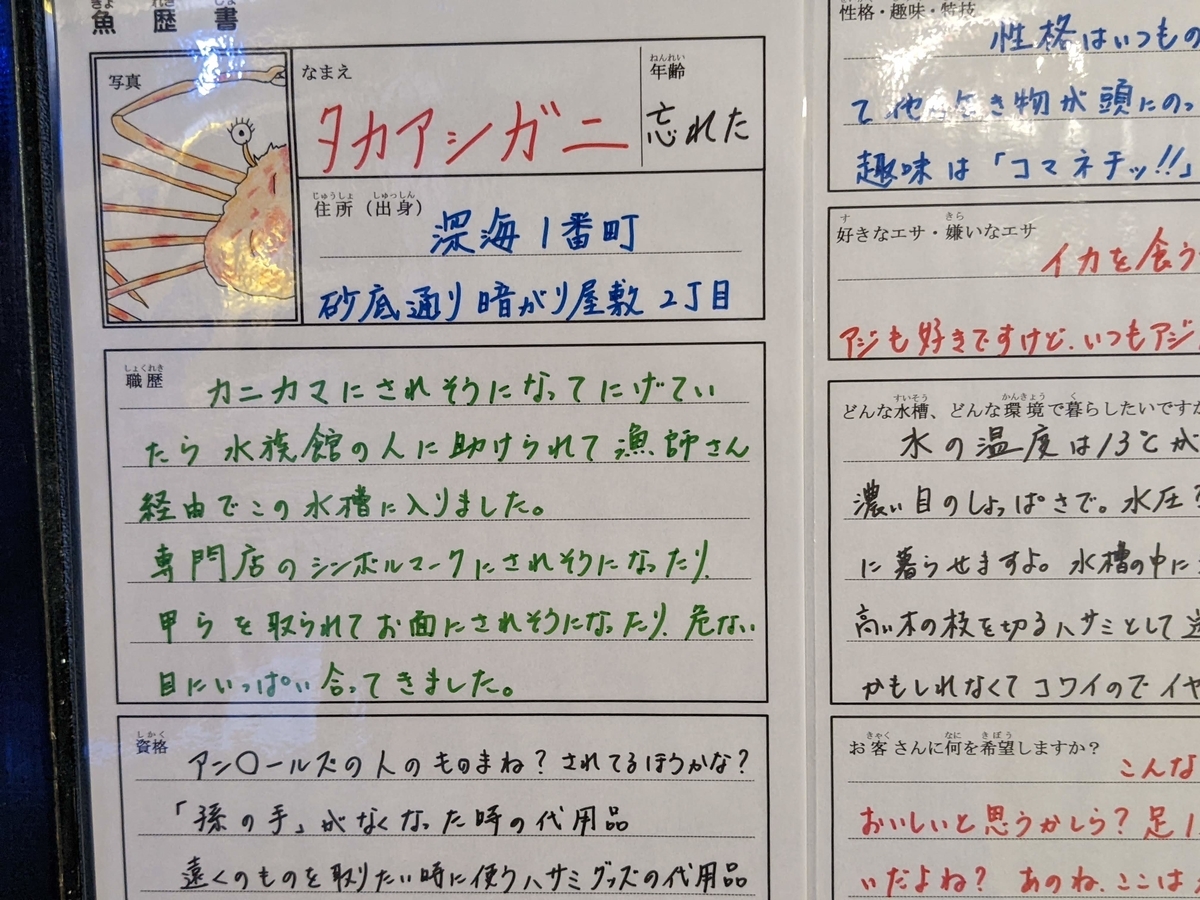 魚歴書
写真
なまえ
タカアシガニ
年齢
忘れた
住所（出身）
深海1番町
砂底通り暗がり屋敷2丁目
職歴
カニカマにされそうになってにげてい
たら水族館の人に助けられて漁師さん
経由でこの水槽に入りました。
専門店のシンボルマークにされそうになったり、
甲らを取られてお面にされそうになったり、危ない
目にいっぱい合ってきました。
資格
アン〇ールズの人のものまね？されてるほうかな？
「孫の手」がなくなった時の代用品
遠くのものを取りたい時に使うハサミグッズの代用品
性格・趣味・特技
性格はいつもの
て他の生き物が頭にのっ
趣味は「コマネチッ!!」
好きなエサ・嫌いなエサ
イカを食う
アジも好きですけど、いつもアジ
どんな水槽、どんな環境で暮らしたいですか
水の温度は13℃が
濃い目のしょっぱさで。水圧
に暮らせますよ。水槽の中に
高い木の枝を切るハサミとして
かもしれなくてコワイのでイヤ
お客さんに何を希望しますか？
こんな
おいしいと思うかしら？足1
いだよね？ あのね、ここは